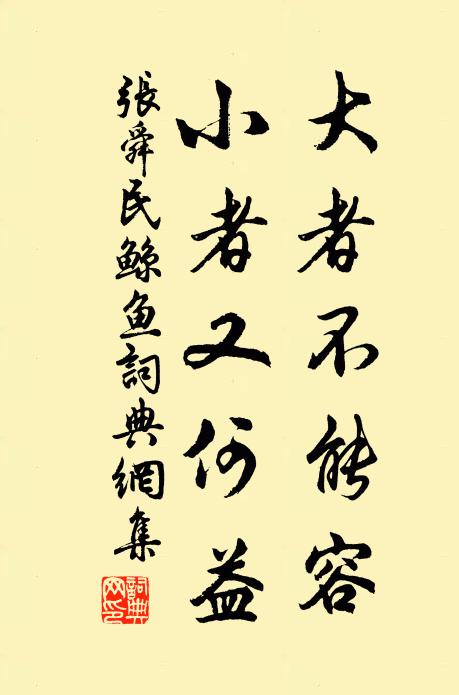 大者不能容
小者又何益
張舜民鯨魚詞典網集
詞典
网印